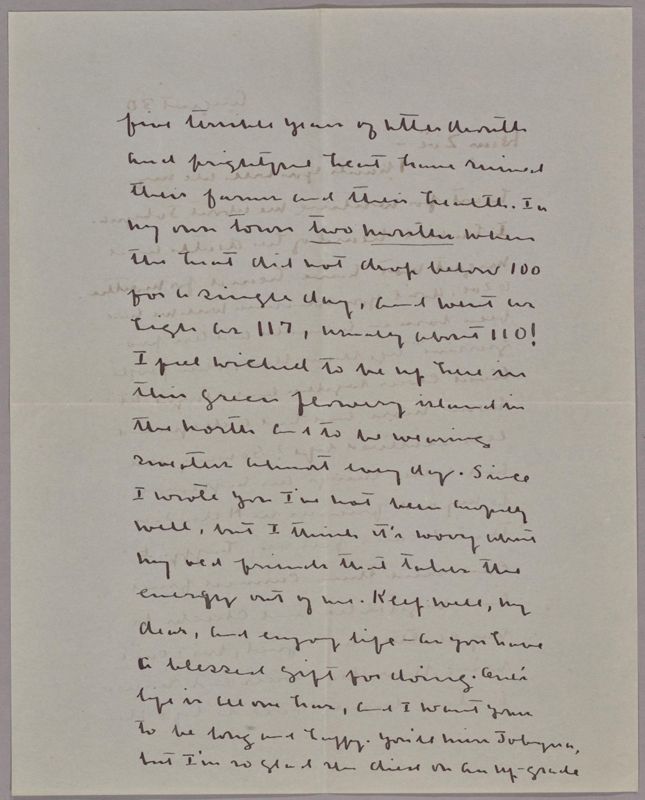 five terrible years of utter drouth
and frightful heat have ruined
their farms and their health. In
my own town two months when
the heat did not drop below 100
for a single day, and went as
high as 117, usually about 110!
I feel wicked to be up here in
this green flowery island in
the north and to be wearing
sweaters almost every day. Since
I wrote you I've not been awfully
well, but I think it's worry about
my old friends that takes the
energy out of me. Keep well, my
dear, and enjoy life – as you have
a blessed gift for doing. One's
life is all one has, and I want yours
to be long and happy. You'll miss Tobyna,
but I'm so glad she died on an up-grade